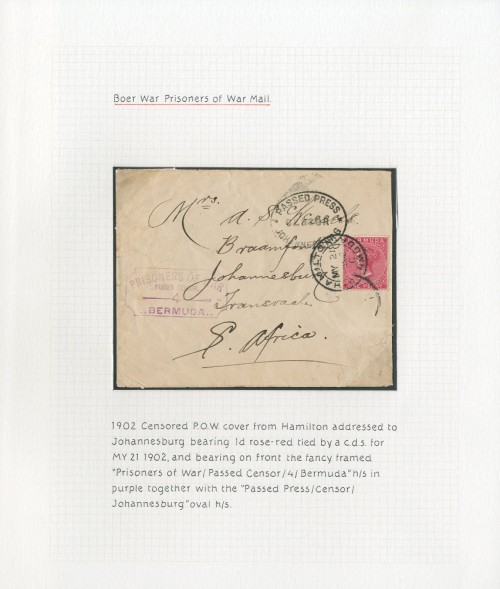 Boer War Prisoners of War Mail.
PASSED PRESS
CENSOR
JOHANNESBURG
Mrs. A. S.
Braamfontein
Johannesburg
Transvaal
S. Africa.
HAMILTON
MY 21
BERMUDA
PRISONERS OF WAR
PASSED CENSOR
4
BERMUDA
1902 Censored P.O.W. cover from Hamilton addressed to
Johannesburg bearing 1d rose-red tied by a c.d.s. for
MY 21 1902, and bearing on front the fancy framed
"Prisoners of War/Passed Censor/4/Bermuda" h/s in
purple together with the "Passed Press/Censor/
Johannesburg" oval h/s.